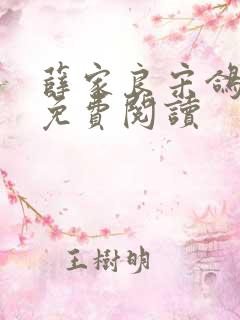 薛家良宋鴿
免費閱讀
王樹明